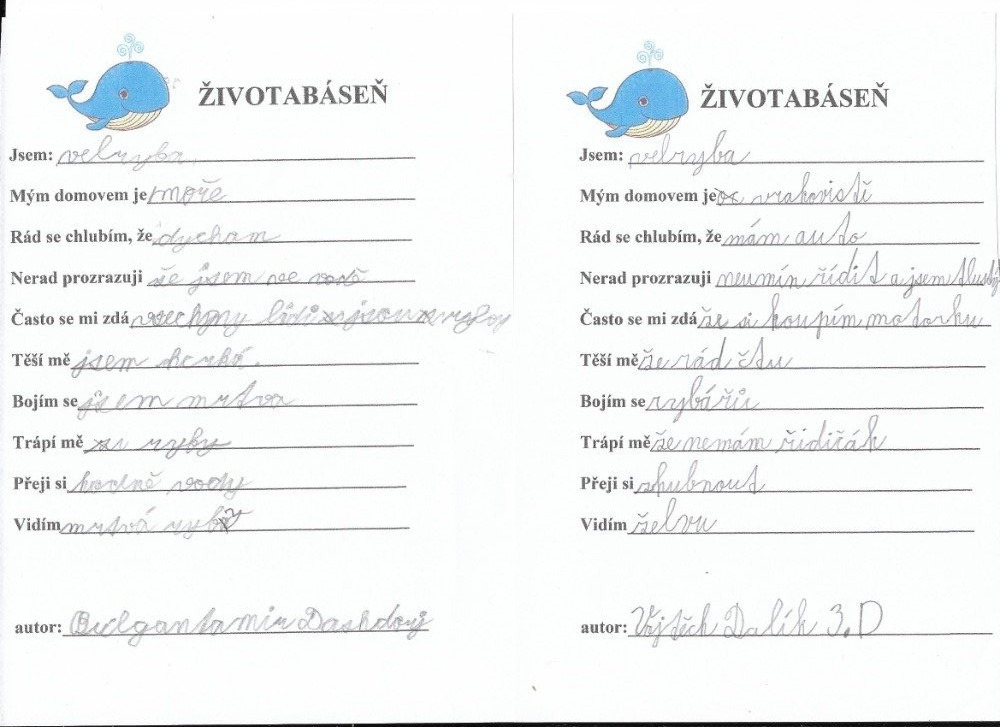 ŽIVOTABÁSEŇ
Jsem: velryba
Mým domovem je moře
Rád se chlubím, že dycham
Nerad prozrazuji že jsem ve vodě
Často se mi zdá vsechny lidi jsou ryby
Těší mě jsem
Bojím se jsem mrtva
Trápí mě ryby
Přeji si hodně vody
Vidím mrtvá
autor:
ŽIVOTABÁSEŇ
Jsem: velryba
Mým domovem je vrakovistě
Rád se chlubím, že mám auto
Nerad prozrazuji neumín řídit a jsem tlustý
Často se mi zdá že si koupím motorku
Těší mě že rád čtu
Bojím se rybářů
Trápí mě že nemám řidičák
Přeji si zhubnout
Vidím želvu
autor: Vojtěch Dalík 3.D